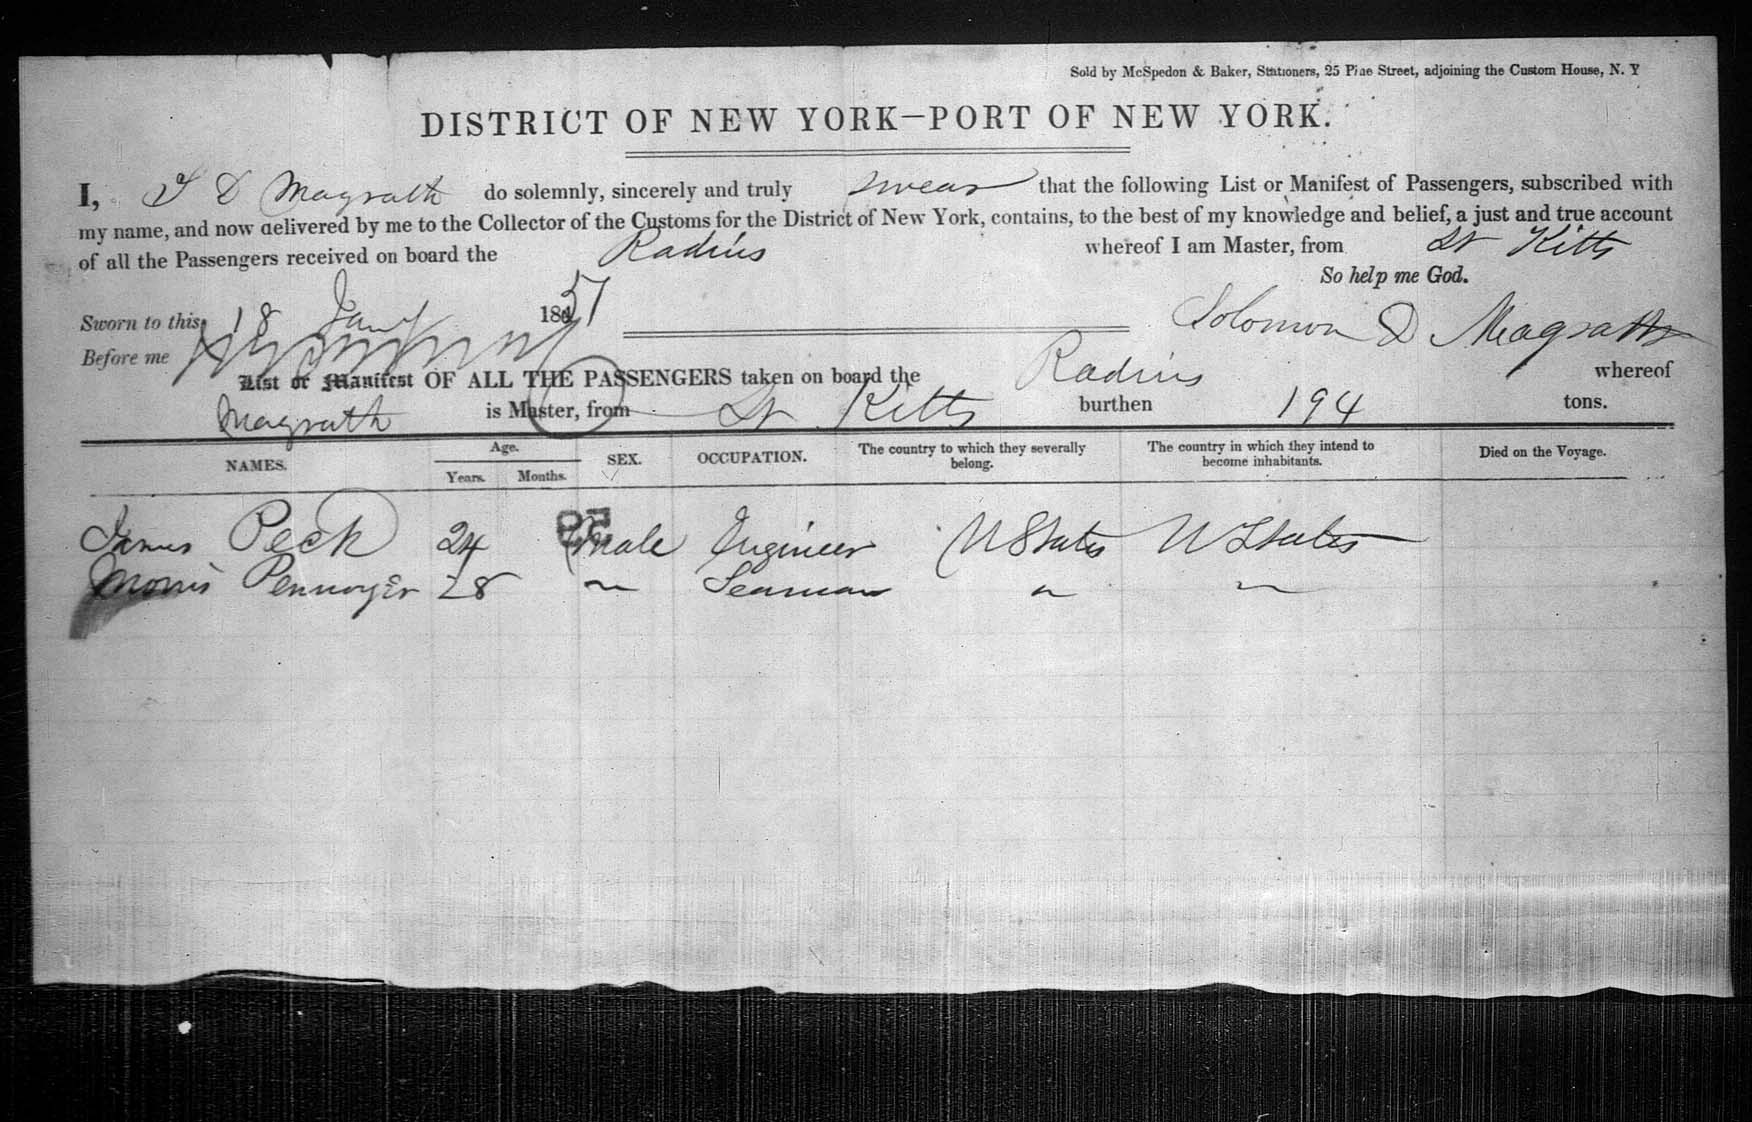 Sold by McSpedon & Baker, Stationers, 25 Pine Street, adjoining the Custom House, N. Y
DISTRICT OF NEW YORK—PORT OF NEW YORK.
I, S D Magrath do solemnly, sincerely and truly swear that the following List or Manifest of Passengers, subscribed with
my name, and now delivered by me to the Collector of the Customs for the District of New York, contains, to the best of my knowledge and belief, a just and true account
of all the Passengers received on board the Radius whereof I am Master, from St Kitts
So help me God.
Sworn to this 18 Jany 1851
Solomon D Magrath
Before me
List or Manifest OF ALL THE PASSENGERS taken on board the Radius whereof
Magrath is Master, from St Kitts burthen 194 tons.
NAMES. Age. Years. Months. SEX. OCCUPATION. The country to which they severally belong. The country in which they intend to become inhabitants. Died on the Voyage.
James Peck 24 Male Engineer U States U States
Morris Pennoyer 28 " Seaman " "